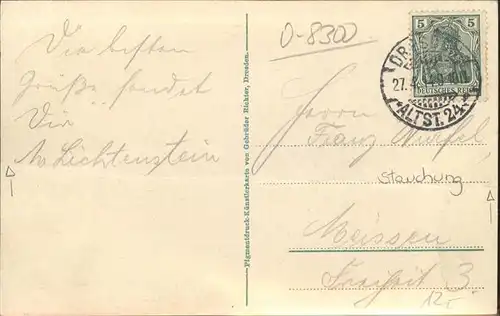 Die besten
Grüße sendet
Dir
M. Lichtenstein
Pigmentdruck-Künstlerkarte von Gebrüder Richter, Dresden.
0-8300
5 5
DEUTSCHES REICH
DRESDEN
27.
*ALTST. 24*
Herrn
Franz Würfel,
Stauchung
Meissen
Freiheit 3.
12,-